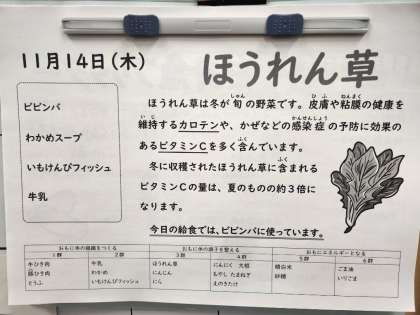 11月14日(木)
ほうれん草
ビビンバ
わかめスープ
いもけんぴフィッシュ
牛乳
ほうれん草は冬が旬の野菜です。皮膚や粘膜の健康を
維持するカロテンや、かぜなどの感染症の予防に効果の
あるビタミンCを多く含んでいます。
冬に収穫されたほうれん草に含まれる
ビタミンCの量は、夏のものの約3倍に
なります。
今日の給食では、ビビンバに使っています。
おもに体の組織をつくる おもに体の調子を整える おもにエネルギーとなる
1群 2群 3群 4群 5群 6群
牛ひき肉 牛乳 ほうれん草 にんにく 大根 精白米 ごま油
豚ひき肉 わかめ にんじん もやし たまねぎ 砂糖 いりごま
とうふ いもけんぴフィッシュ にら えのきたけ